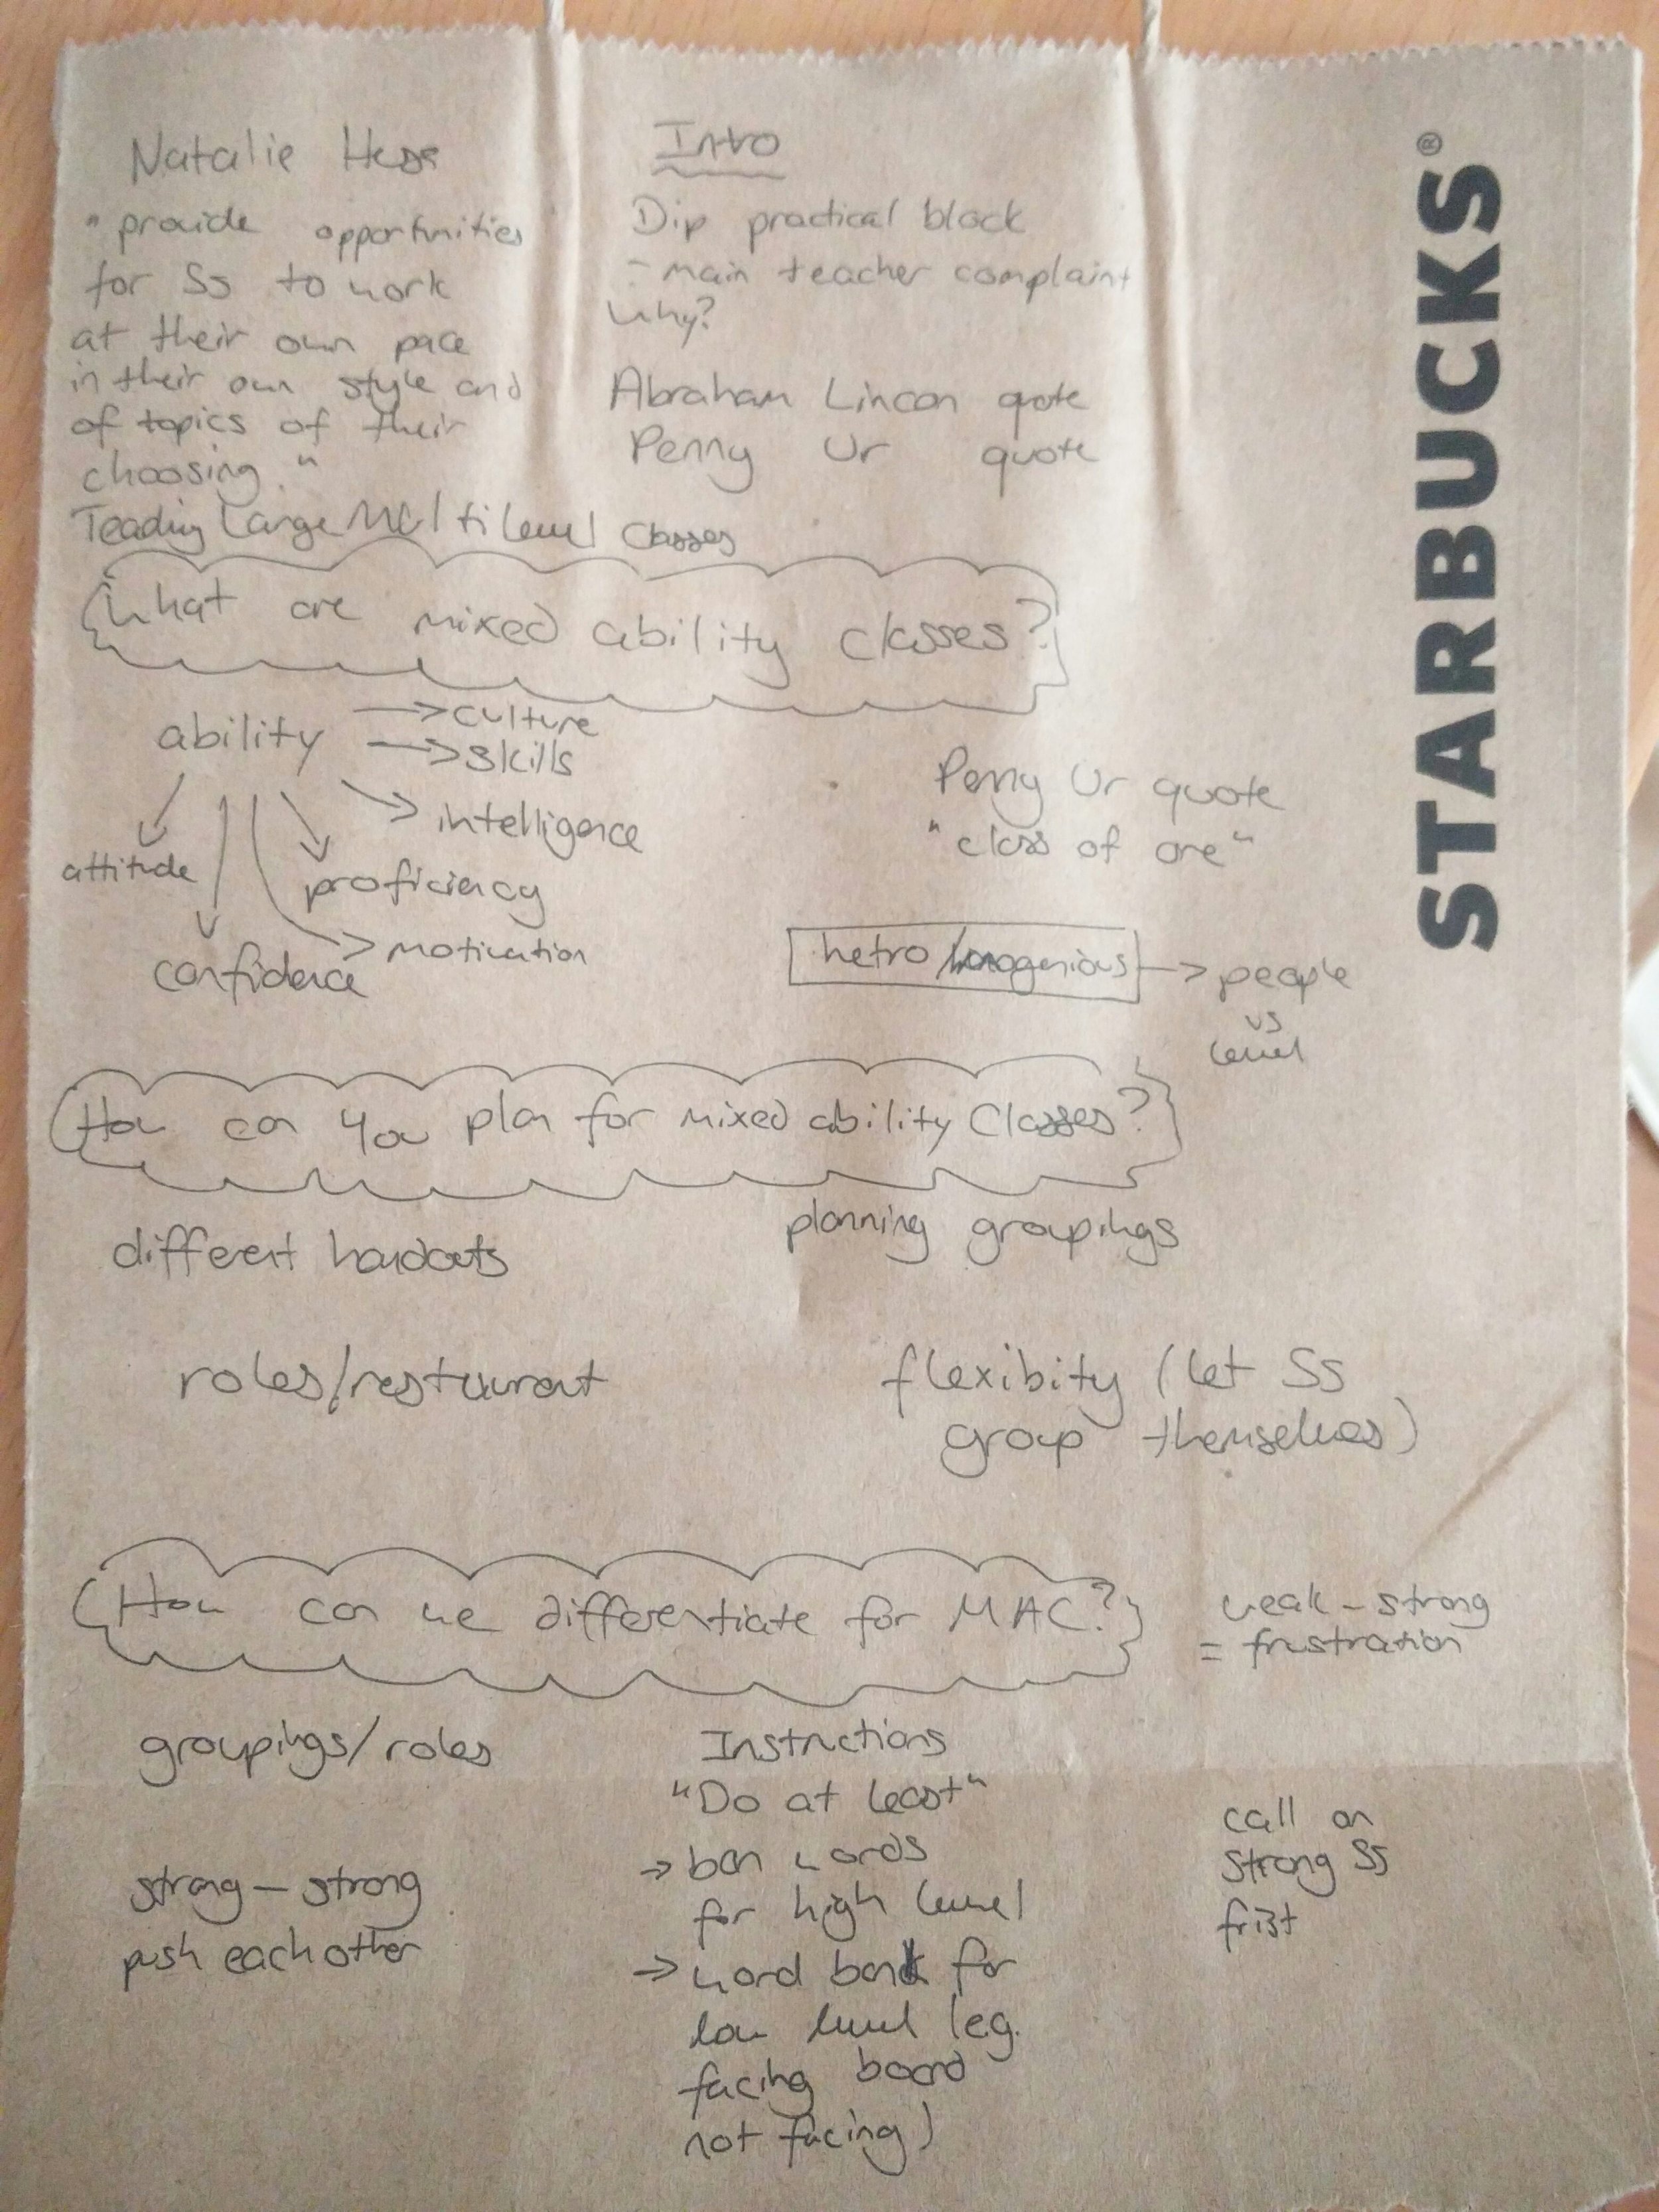 Natalie Hess
"provide opportunities
for Ss to work
at their own pace
in their own style and
of topics of their
choosing."
Teaching Large Multilevel Classes
Intro
Dip practical block
- main teacher complaint
why?
Abraham Lincon quote
Penny Ur quote
STARBUCKS®
What are mixed ability classes?
ability
→ culture
→ skills
→ intelligence
proficiency
→ motivation
attitude
confidence
Penny Ur quote
"class of one"
hetro/homogenious → people
vs
level
How can you plan for mixed ability Classes?
different handouts
planning groupings
roles/restaurant
flexibity (let Ss
group themselves)
How can we differentiate for MAC?
weak - strong
= frustration
groupings/roles
strong - strong
push each other
Instructions
"Do at least"
→ ban words
for high level
→ word bank for
low level (eg.
facing board
not facing)
call on
strong Ss
frist